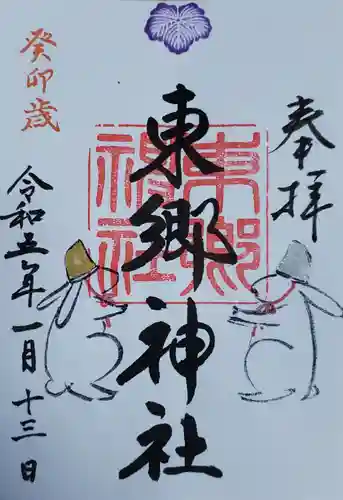 奉拝
東郷神社
東郷
神社
癸卯歳
令和五年一月十三日